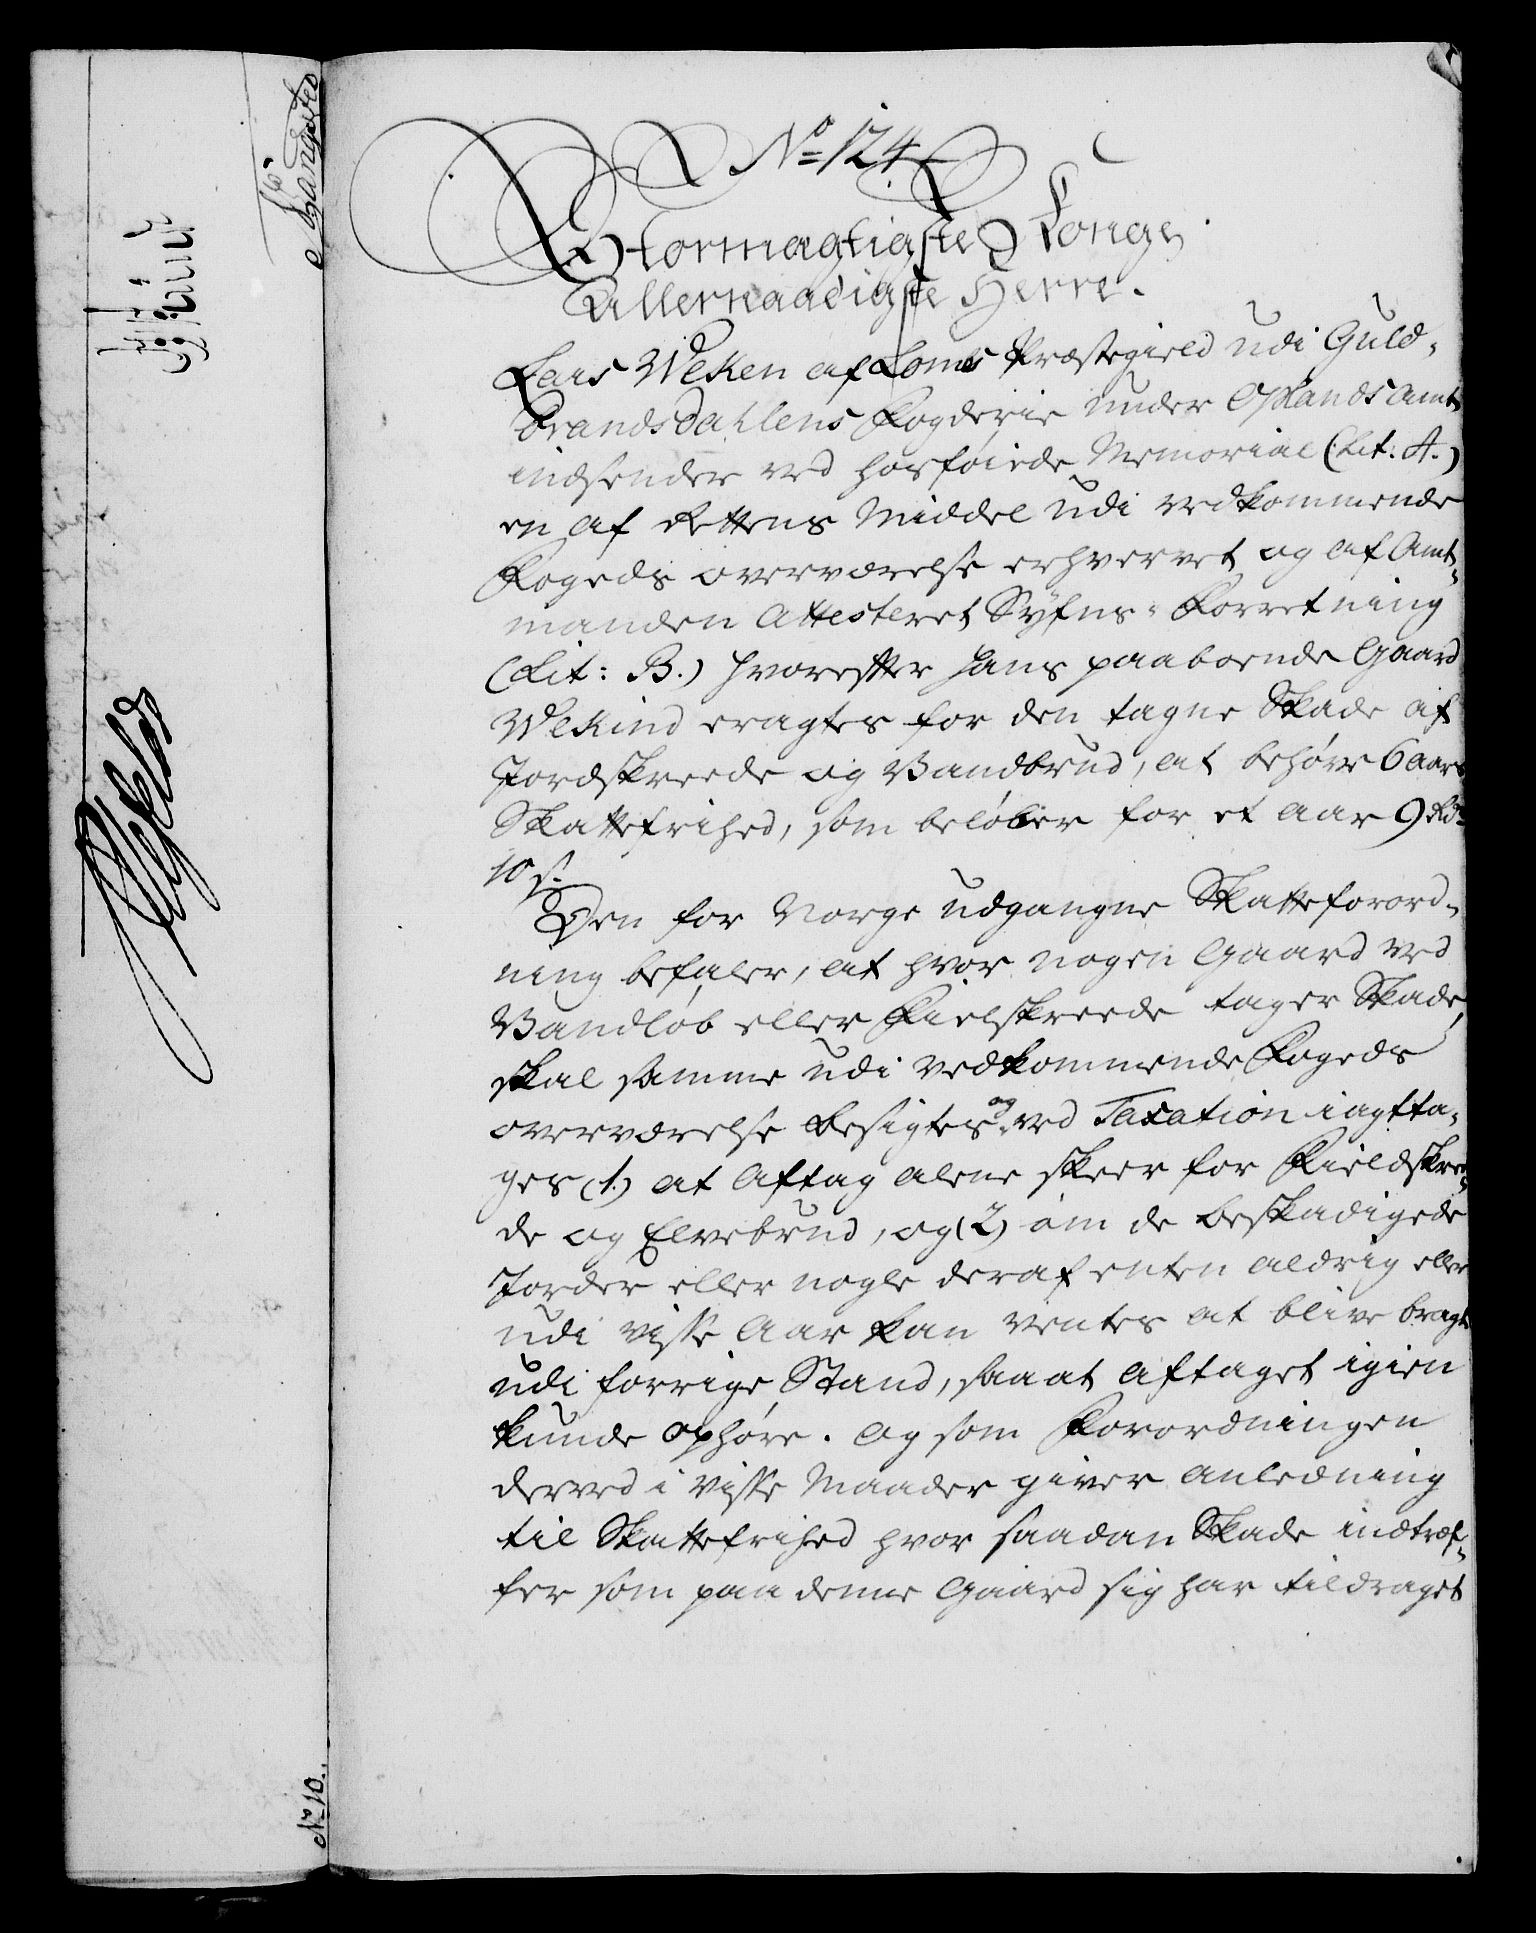 No 124
Stormægtigste Konge,
Allernaadigste Herre.
Lars Weken af Lomb Præstegield udi Guld-
brandsdahlens Fogderie under Oplands Amt
indsender ved hosføiede Memorial (Lit: A.)
en af Rettens Middel udi vedkommende
Fogeds overværelse erhvervet og af Amt-
manden Attesteret Syfns-Forretning
(Lit: B.) hvorefter hans paaboende Gaard
Wekind eragtes for den tagne Skade af
Jordskreede og Vandbrud, at behøve 6 aars
Skattefrihed, som beløber for et Aar 9 Rd
10 s.
Den for Norge udgangne Skatteforord-
ning befaler, at hvor nogen Gaard ved
Vandløb eller Fielskreede tager Skade,
skal samme udi vedkommende Fogeds
overværelse besigtes og ved Taxation iagtta-
ges (1.) at Aftag alene skeer for Fieldskree-
de og Elvebrud, og (2) om de beskadigede
Jorder eller nogle deraf enten aldrig eller
udi visse Aar kan ventes at blive bragt
udi forrige Stand, saaat Aftaget igien
kunde ophøre. Og som Forordningen
derved i visse Maader giver anledning
til Skattefrihed hvor saadan Skade indtræf-
fer som paa denne Gaard sig har tildraget
No 10.